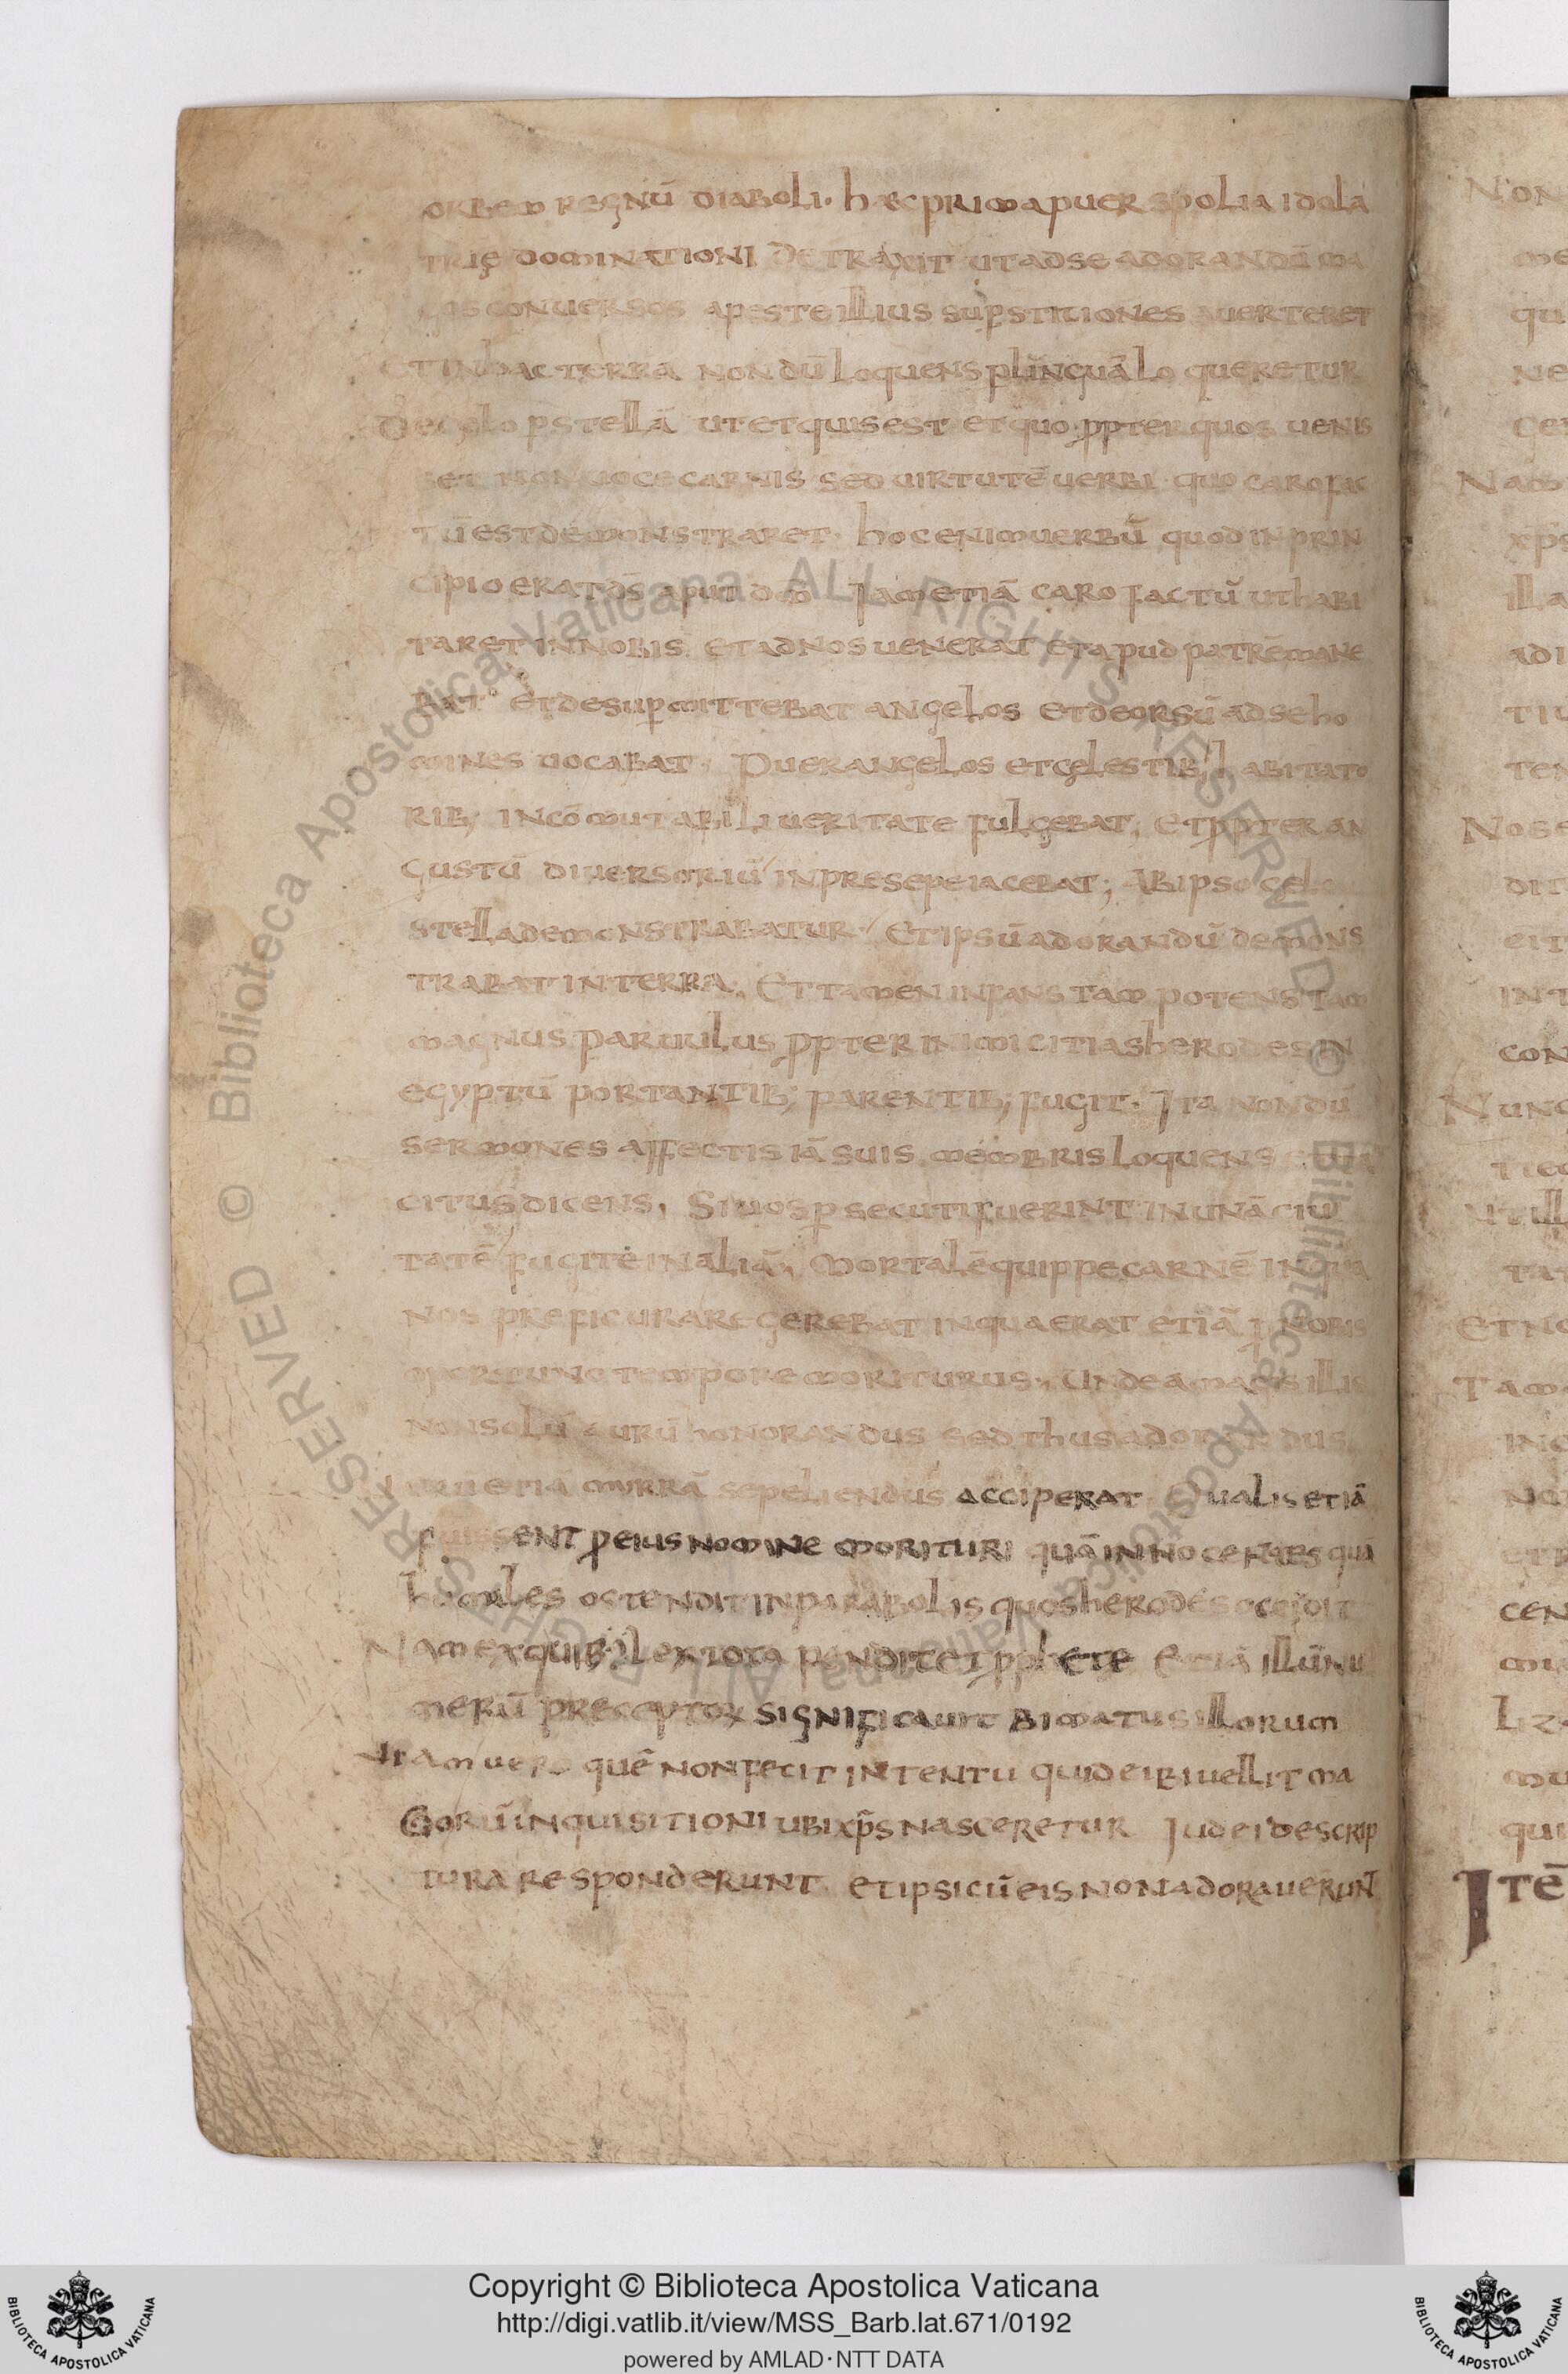 orbem regnū diaboli. haec prima puer spolia idola
trię dominationi detraxit ut ad se adorandū ma
gos conuersos a peste illius supstitiones auerteret
et in hac terra nondū loquens p linguā loqueretur
de cęlo p stellā ut et quis est et quo ppter quos uenis
set non uoce carnis sed uirtutē uerbi quo caro fac
tū est demonstraret. hoc enim uerbū quod in prin
cipio erat ds̄ aput dm̄ Iam etiā caro factū ut habi
taret in nobis et ad nos uenerat et apud patrē mane
bat. et desup mittebat angelos et deorsū ad se ho
mines uocabat. Puer angelos et cęlestib; habitato
rib; incōmutabili ueritate fulgebat; et ppter an
gustū diuersoriū in presepe iacebat; Ab ipso cęlo
stella demonstrabatur. Et ipsū adorandū demons
trabat in terra. Et tamen infans tam potens tam
magnus paruulus ppter inimicitias herodes in
egyptū portantib; parentib; fugit. Ita nondū
sermones affectis iā suis membris loquens
citus dicens, Si uos p secuti fuerint in unā ciui
tatē fugite in aliā. Mortalē quippe carnē in qua
nos prefigurare gerebat in qua erat etiā p nobis
oportuno tempore moriturus. Unde a magis illis
non solū aurū honorandus sed thus adorandus
uerū etiā myrrā sepeliendus acciperat. Qualis etiā
fuissent p eius nomine morituri quā innocentes qua
humiles ostendit in parabolis quos herodes occidit
Nam ex quib; lex tota pendit et pphete Etiā illū nu
merū preceptor significauit bimatus illorum
Iram uero quē non fecit intentu quid eibi uellit ma
gorū inquisitioni ubi xp̄s nasceretur Iudei de scrip
tura responderunt et ipsi cū eis non adorauerunt
Itē
© Biblioteca Apostolica Vaticana ALL RIGHTS RESERVED
Copyright © Biblioteca Apostolica Vaticana
http://digi.vatlib.it/view/MSS_Barb.lat.671/0192
powered by AMLAD·NTT DATA
BIBLIOTECA APOSTOLICA VATICANA
BIBLIOTECA APOSTOLICA VATICANA